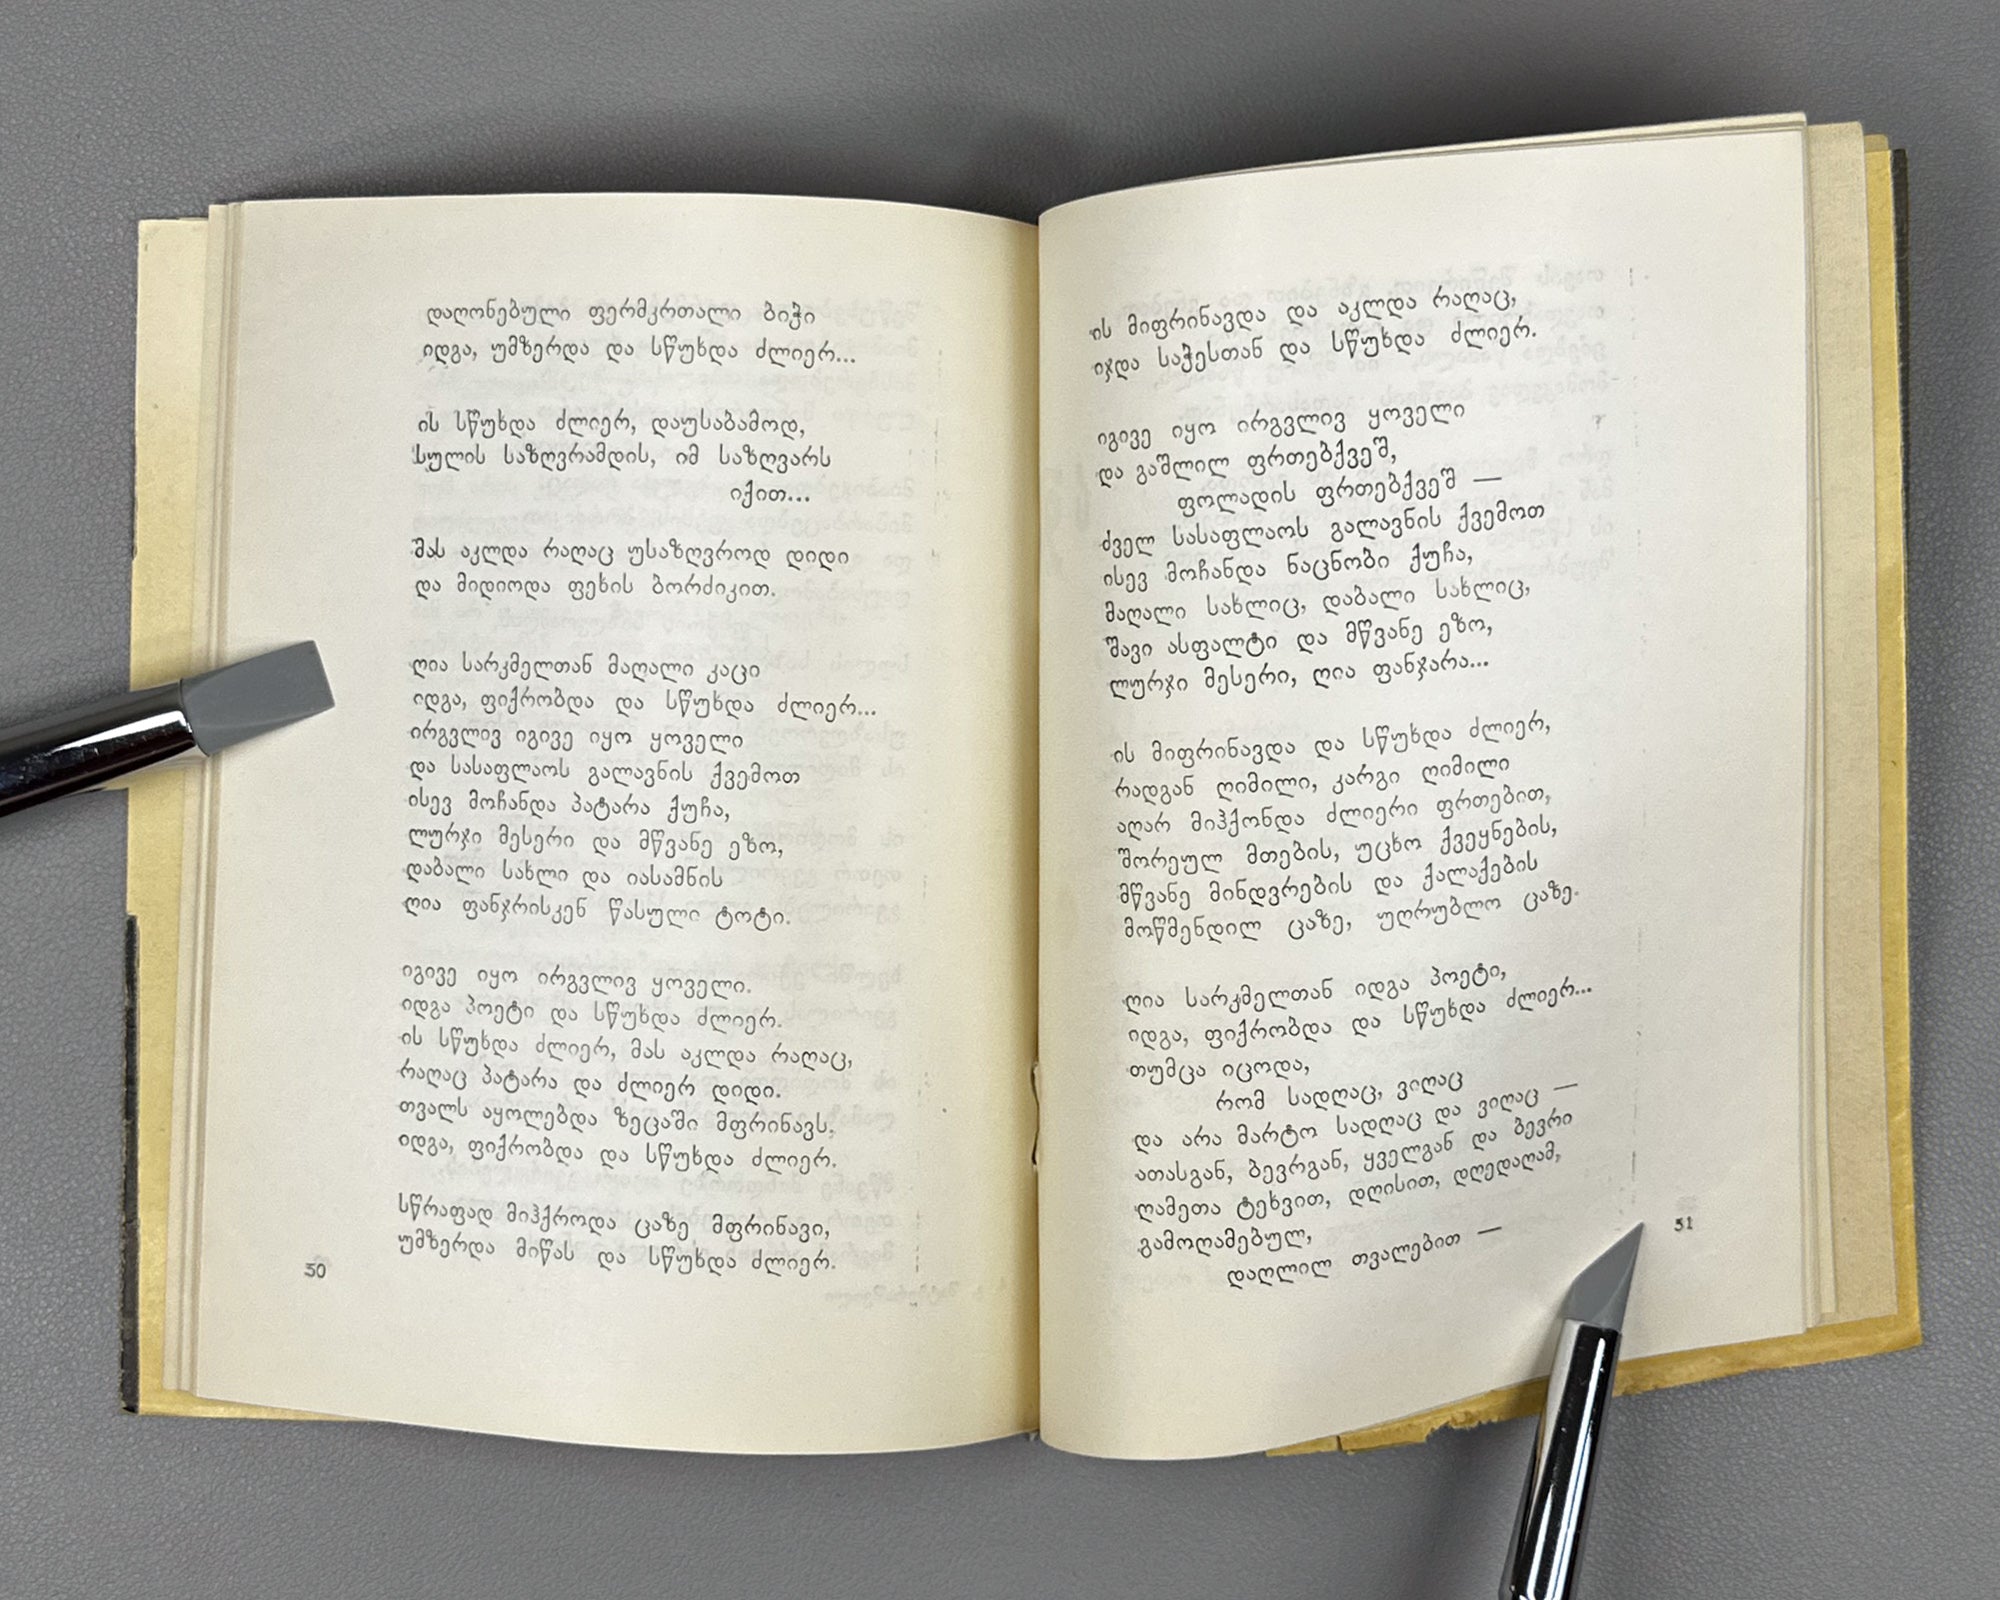 დაღონებული ფერმკრთალი ბიჭი
იდგა, უმზერდა და სწუხდა ძლიერ...
ის სწუხდა ძლიერ, დაუსაბამოდ,
სულის საზღვრამდის, იმ საზღვარს
იქით...
მას აკლდა რაღაც უსაზღვროდ დიდი
და მიდიოდა ფეხის ბორძიკით.
ღია სარკმელთან მაღალი კაცი
იდგა, ფიქრობდა და სწუხდა ძლიერ...
ირგვლივ იგივე იყო ყოველი
და სასაფლაოს გალავნის ქვემოთ
ისევ მოჩანდა პატარა ქუჩა,
ლურჯი მესერი და მწვანე ეზო,
დაბალი სახლი და იასამნის
ღია ფანჯრისკენ წასული ტოტი.
იგივე იყო ირგვლივ ყოველი.
იდგა პოეტი და სწუხდა ძლიერ.
ის სწუხდა ძლიერ, მას აკლდა რაღაც,
რაღაც პატარა და ძლიერ დიდი.
თვალს აყოლებდა ზეცაში მფრინავს.
იდგა, ფიქრობდა და სწუხდა ძლიერ.
სწრაფად მიჰქროდა ცაზე მფრინავი,
უმზერდა მიწას და სწუხდა ძლიერ.
50
ის მიფრინავდა და აკლდა რაღაც,
იჯდა საჭესთან და სწუხდა ძლიერ.
იგივე იყო ირგვლივ ყოველი
და გაშლილ ფრთებქვეშ,
ფოლადის ფრთებქვეშ —
ძველ სასაფლაოს გალავნის ქვემოთ
ისევ მოჩანდა ნაცნობი ქუჩა,
მაღალი სახლიც, დაბალი სახლიც,
შავი ასფალტი და მწვანე ეზო,
ლურჯი მესერი, ღია ფანჯარა...
ის მიფრინავდა და სწუხდა ძლიერ,
რადგან ღიმილი, კარგი ღიმილი
აღარ მიჰქონდა ძლიერი ფრთებით,
შორეულ მთების, უცხო ქვეყნების,
მწვანე მინდვრების და ქალაქების
მოწმენდილ ცაზე, უღრუბლო ცაზე.
ღია სარკმელთან იდგა პოეტი,
იდგა, ფიქრობდა და სწუხდა ძლიერ...
თუმცა იცოდა,
რომ სადღაც, ვიღაც
და არა მარტო სადღაც და ვიღაც —
ათასგან, ბევრგან, ყველგან და ბევრი
ღამეთა ტეხვით, დღისით, დღედაღამ,
გამოღამებულ,
დაღლილ თვალებით —
51